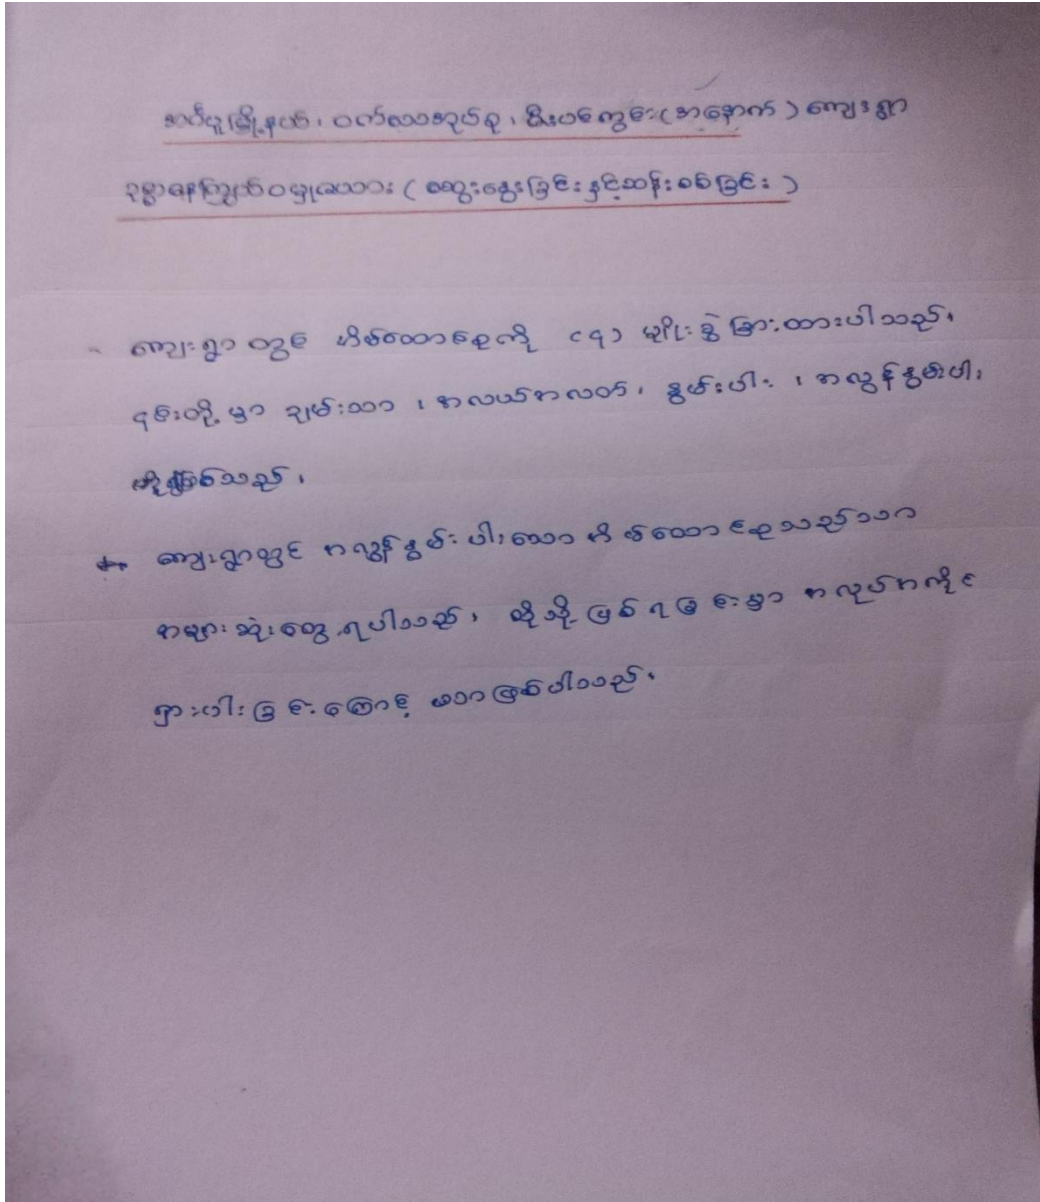 အင်္ဂပူမြို့နယ်၊ ဝက်လာအုပ်စု၊ ကွင်း(အနောက်) ကျေးရွာ
ဥစ္စာဓနကြွယ်ဝမှုဇယား ( ဆွေးနွေးခြင်းနှင့်ဆန်းစစ်ခြင်း )
- ကျေးရွာ တွင် အိမ်ထောင်စုကို (၄) မျိုးခွဲ ခြားထားပါသည်၊
၎င်းတို့မှာ ချမ်းသာ ၊ အလယ်အလတ်၊ နွမ်းပါး ၊ အလွန်နွမ်းပါး
တို့ဖြစ်သည်၊
ကျေးရွာတွင် အလွန်နွမ်းပါးသော အိမ်ထောင်စုသည်သာ
အများဆုံးတွေ့ရပါသည်၊ ထိုသို့ ဖြစ်ရခြင်းမှာ အလုပ်အကိုင်
ရှားပါးခြင်းကြောင့် သာဖြစ်ပါသည်၊